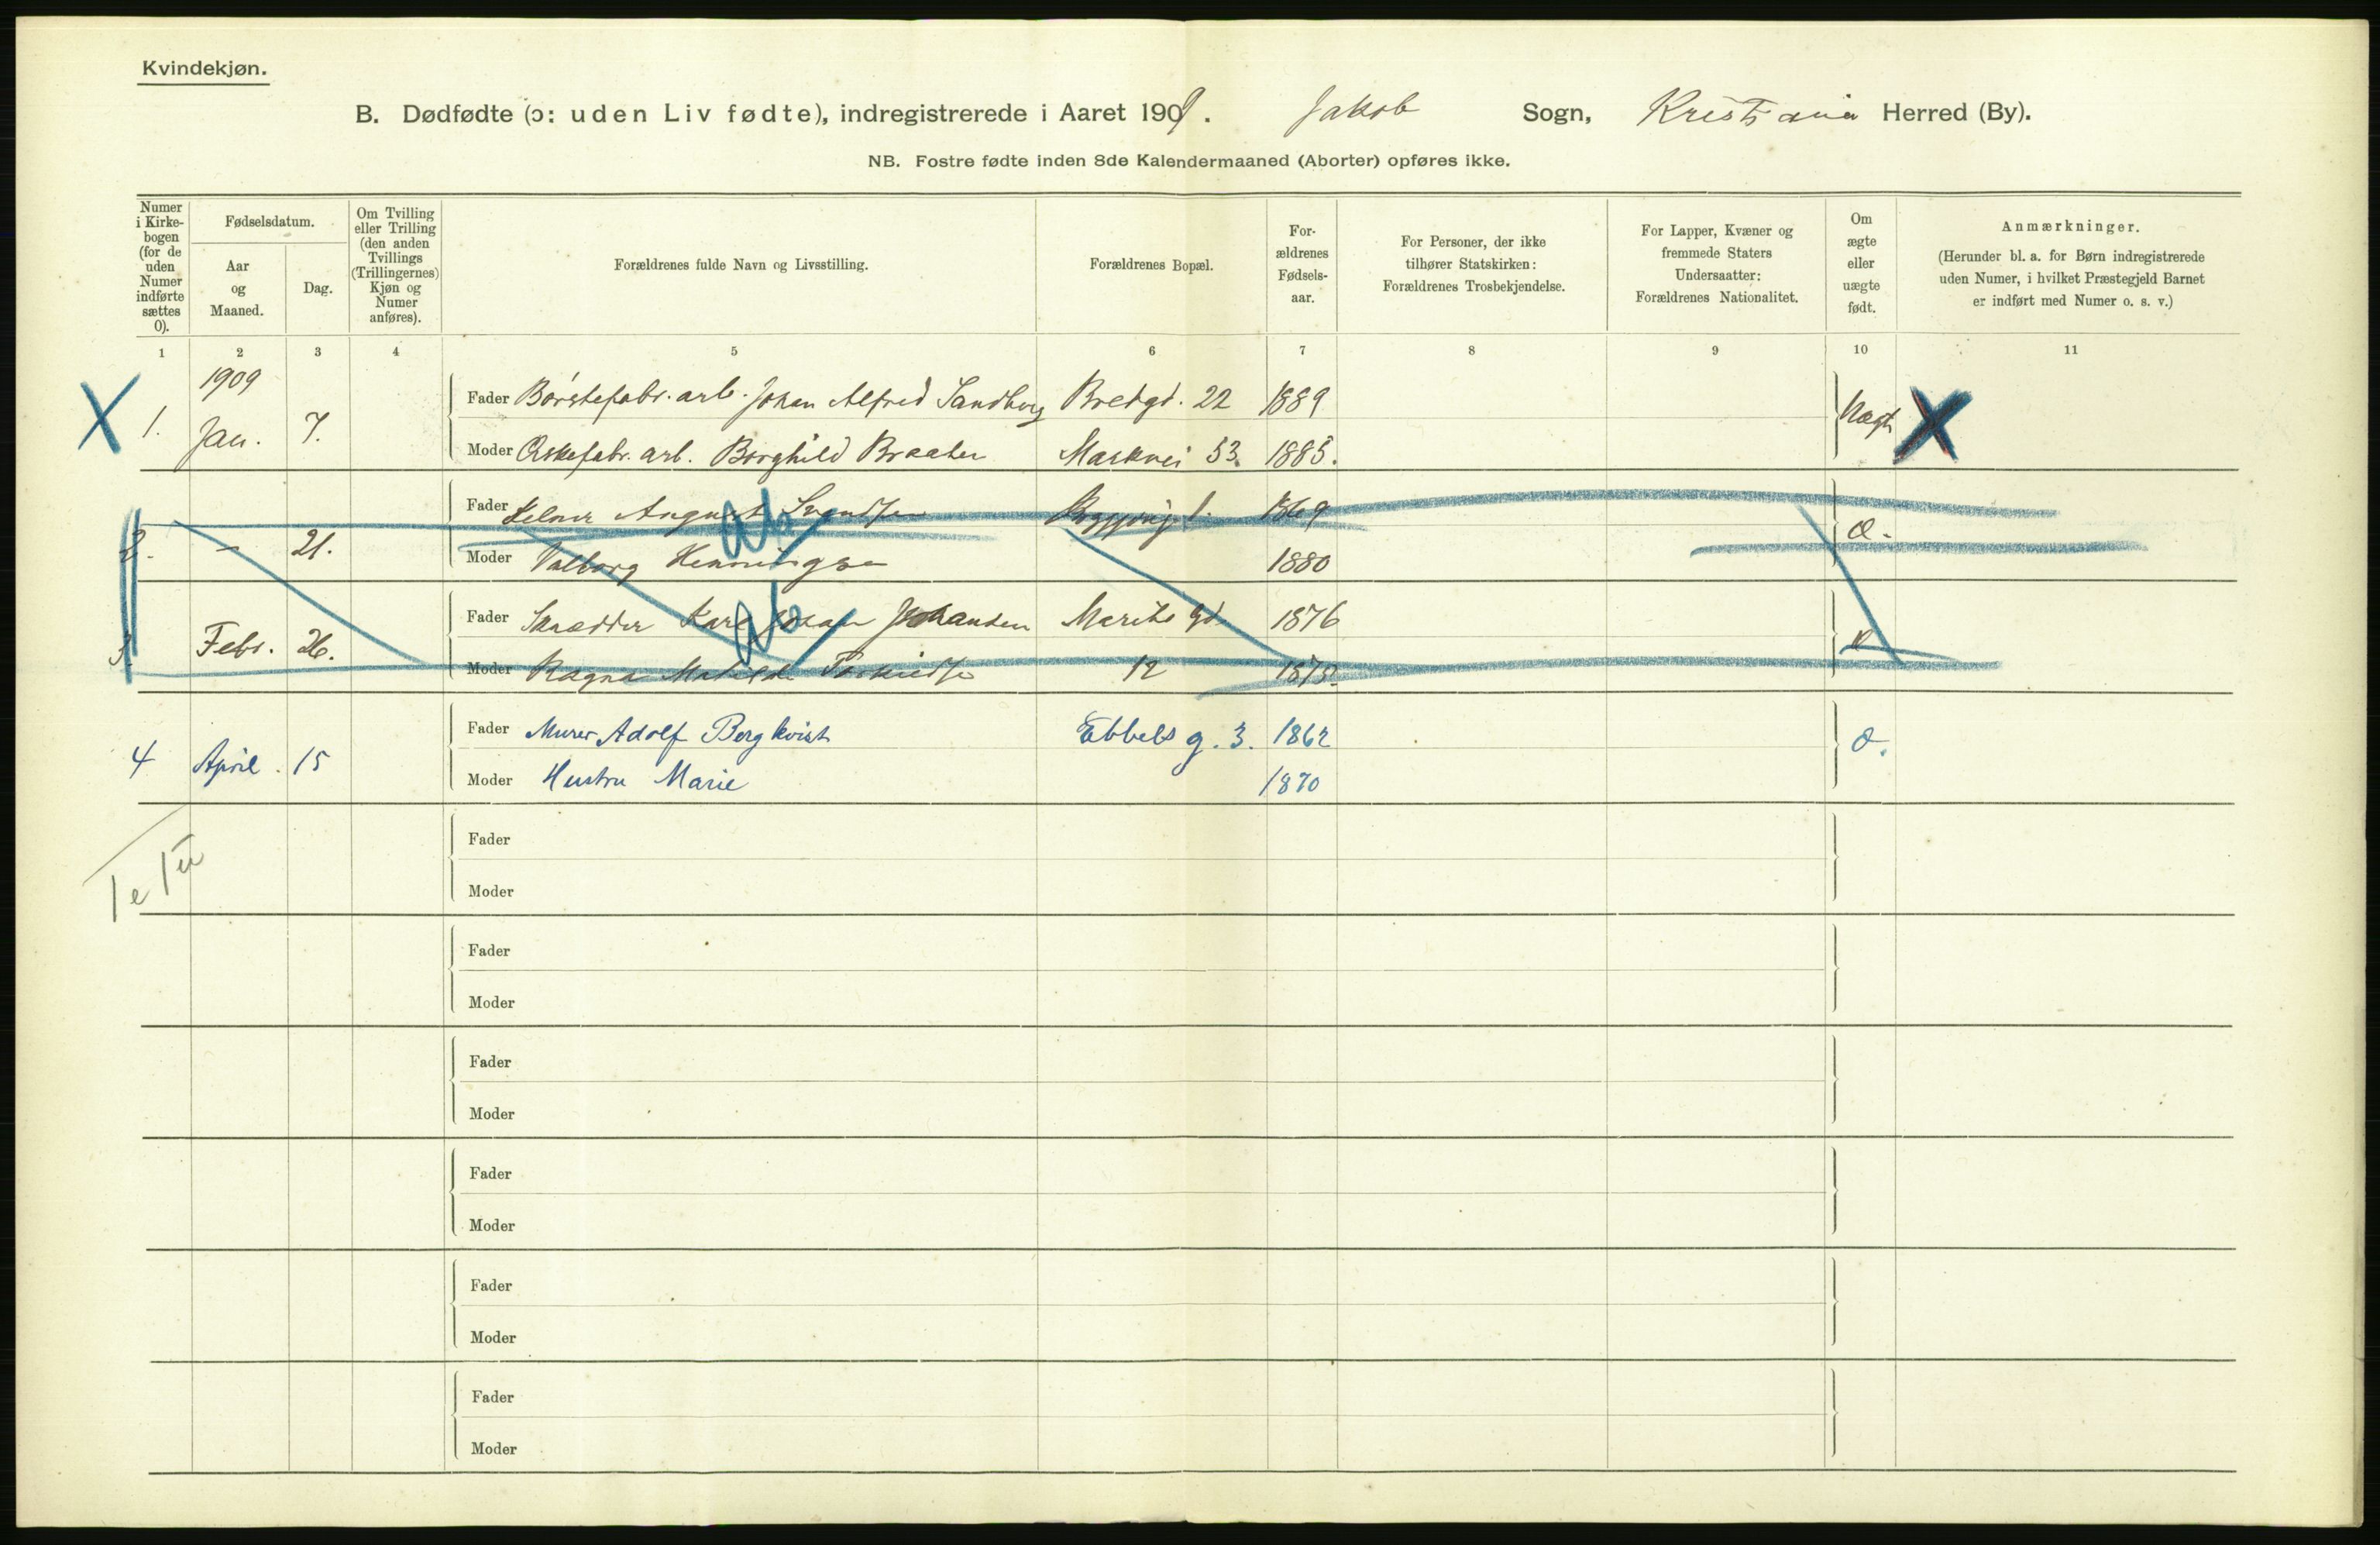 Kvindekjøn.
B. Dødfødte (ɔ: uden Liv fødte), indregistrerede i Aaret 1909. Jakob Sogn, Kristiania Herred (By).
NB. Fostre fødte inden 8de Kalendermaaned (Aborter) opføres ikke.
Numer i Kirkebogen (for de uden Numer indførte sættes 0).
Fødselsdatum.
Aar og Maaned.
Dag.
Om Tvilling eller Trilling (den anden Tvillings (Trillingernes) Kjøn og Numer anføres).
Forældrenes fulde Navn og Livsstilling.
Forældrenes Bopæl.
Forældrenes Fødselsaar.
For Personer, der ikke tilhører Statskirken: Forældrenes Trosbekjendelse.
For Lapper, Kvæner og fremmede Staters Undersaatter: Forældrenes Nationalitet.
Om ægte eller uægte født.
Anmærkninger.
(Herunder bl. a. for Børn indregistrerede uden Numer, i hvilket Præstegjeld Barnet er indført med Numer o. s. v.)
1 2 3 4 5 6 7 8 9 10 11
1909
X 1. Jan. 7. Fader Børstefabr. arb. Johan Alfred Sandberg Bredgd. 22 1889 Uægte X
Moder Æskefabr. arb. Borghild Braaten Markvei 53. 1885.
2. – 21. Fader Kelner August Svendsen 1869 Æ.
Moder Valborg Henningsen 1880
3. Febr. 26. Fader Skrædder Karl Johan Johansen Marits gd. 1876 Æ
Moder Ragna Matilde 12 1873.
4 April. 15 Fader Murer Adolf Bergkvist Ebbels g. 3. 1862 Æ.
Moder Hustru Marie 1870
Fader
Moder
Fader
Moder
Fader
Moder
Fader
Moder
Fader
Moder
Fader
Moder